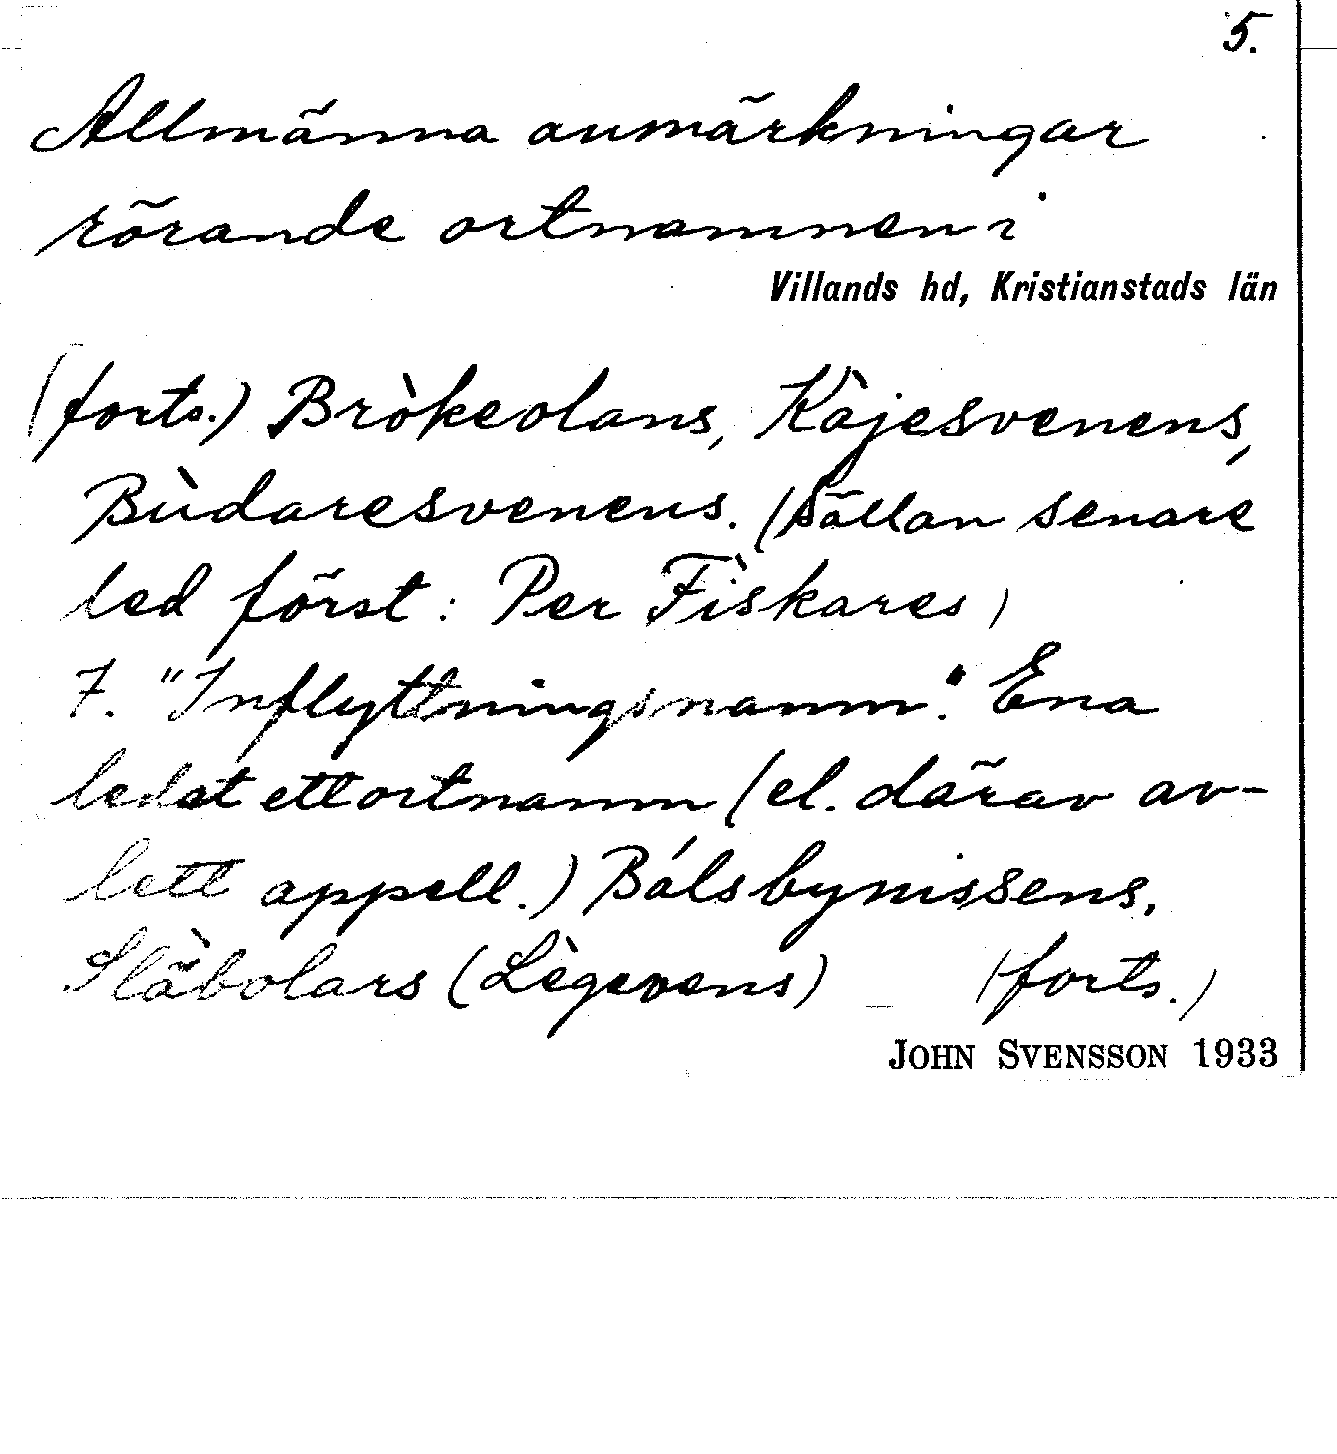 5.
Allmänna anmärkningar
rörande ortnamnen i
Villands hd, Kristianstads län
(forts.) Bròkeolans, Kàjesvenens,
Bùdaresvenens. (Sällan senare
led först: Per Fìskares)
7. "Inflyttningsnamn". Ena
ledet ett ortnamn (el. därav av-
lett appell.) Bálsbynissens,
Slä̀bolars (Lègevens) (forts.)
JOHN SVENSSON 1933